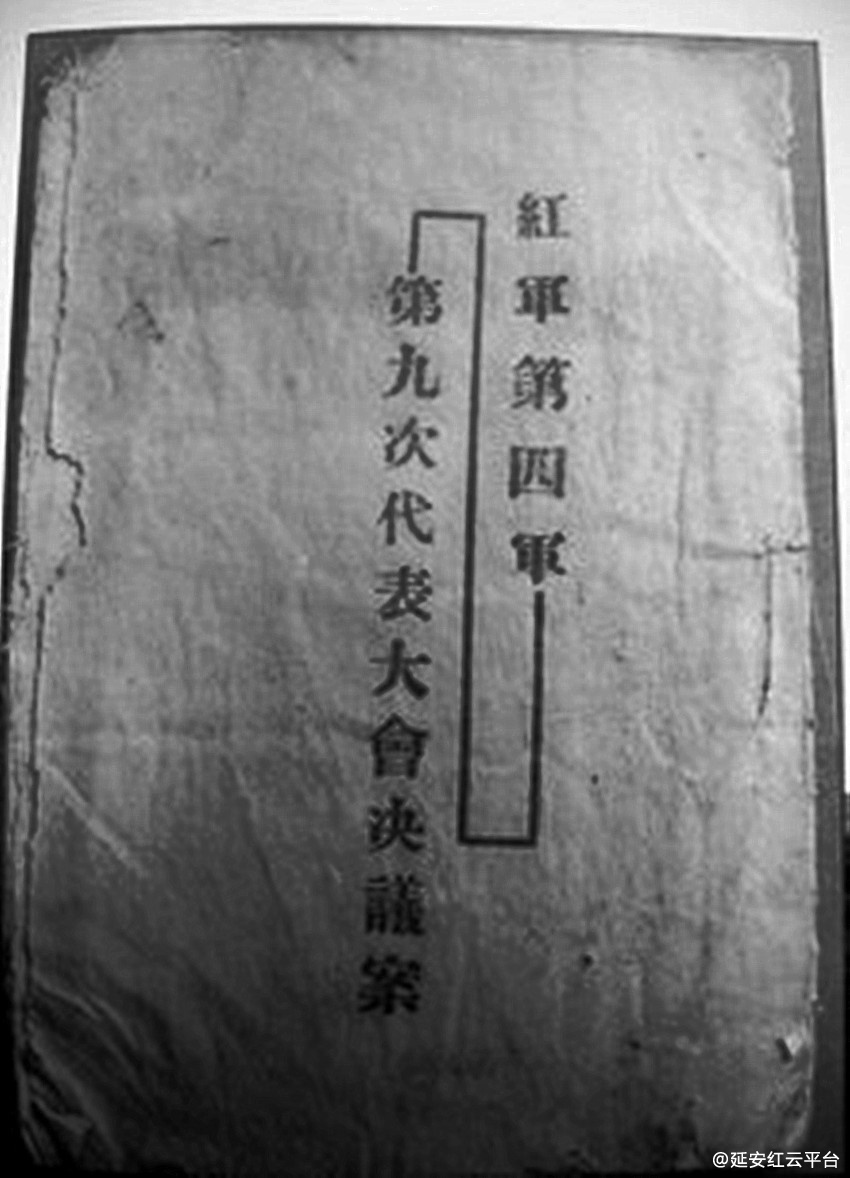 紅軍第四軍
第九次代表大會决議案
@延安红云平台